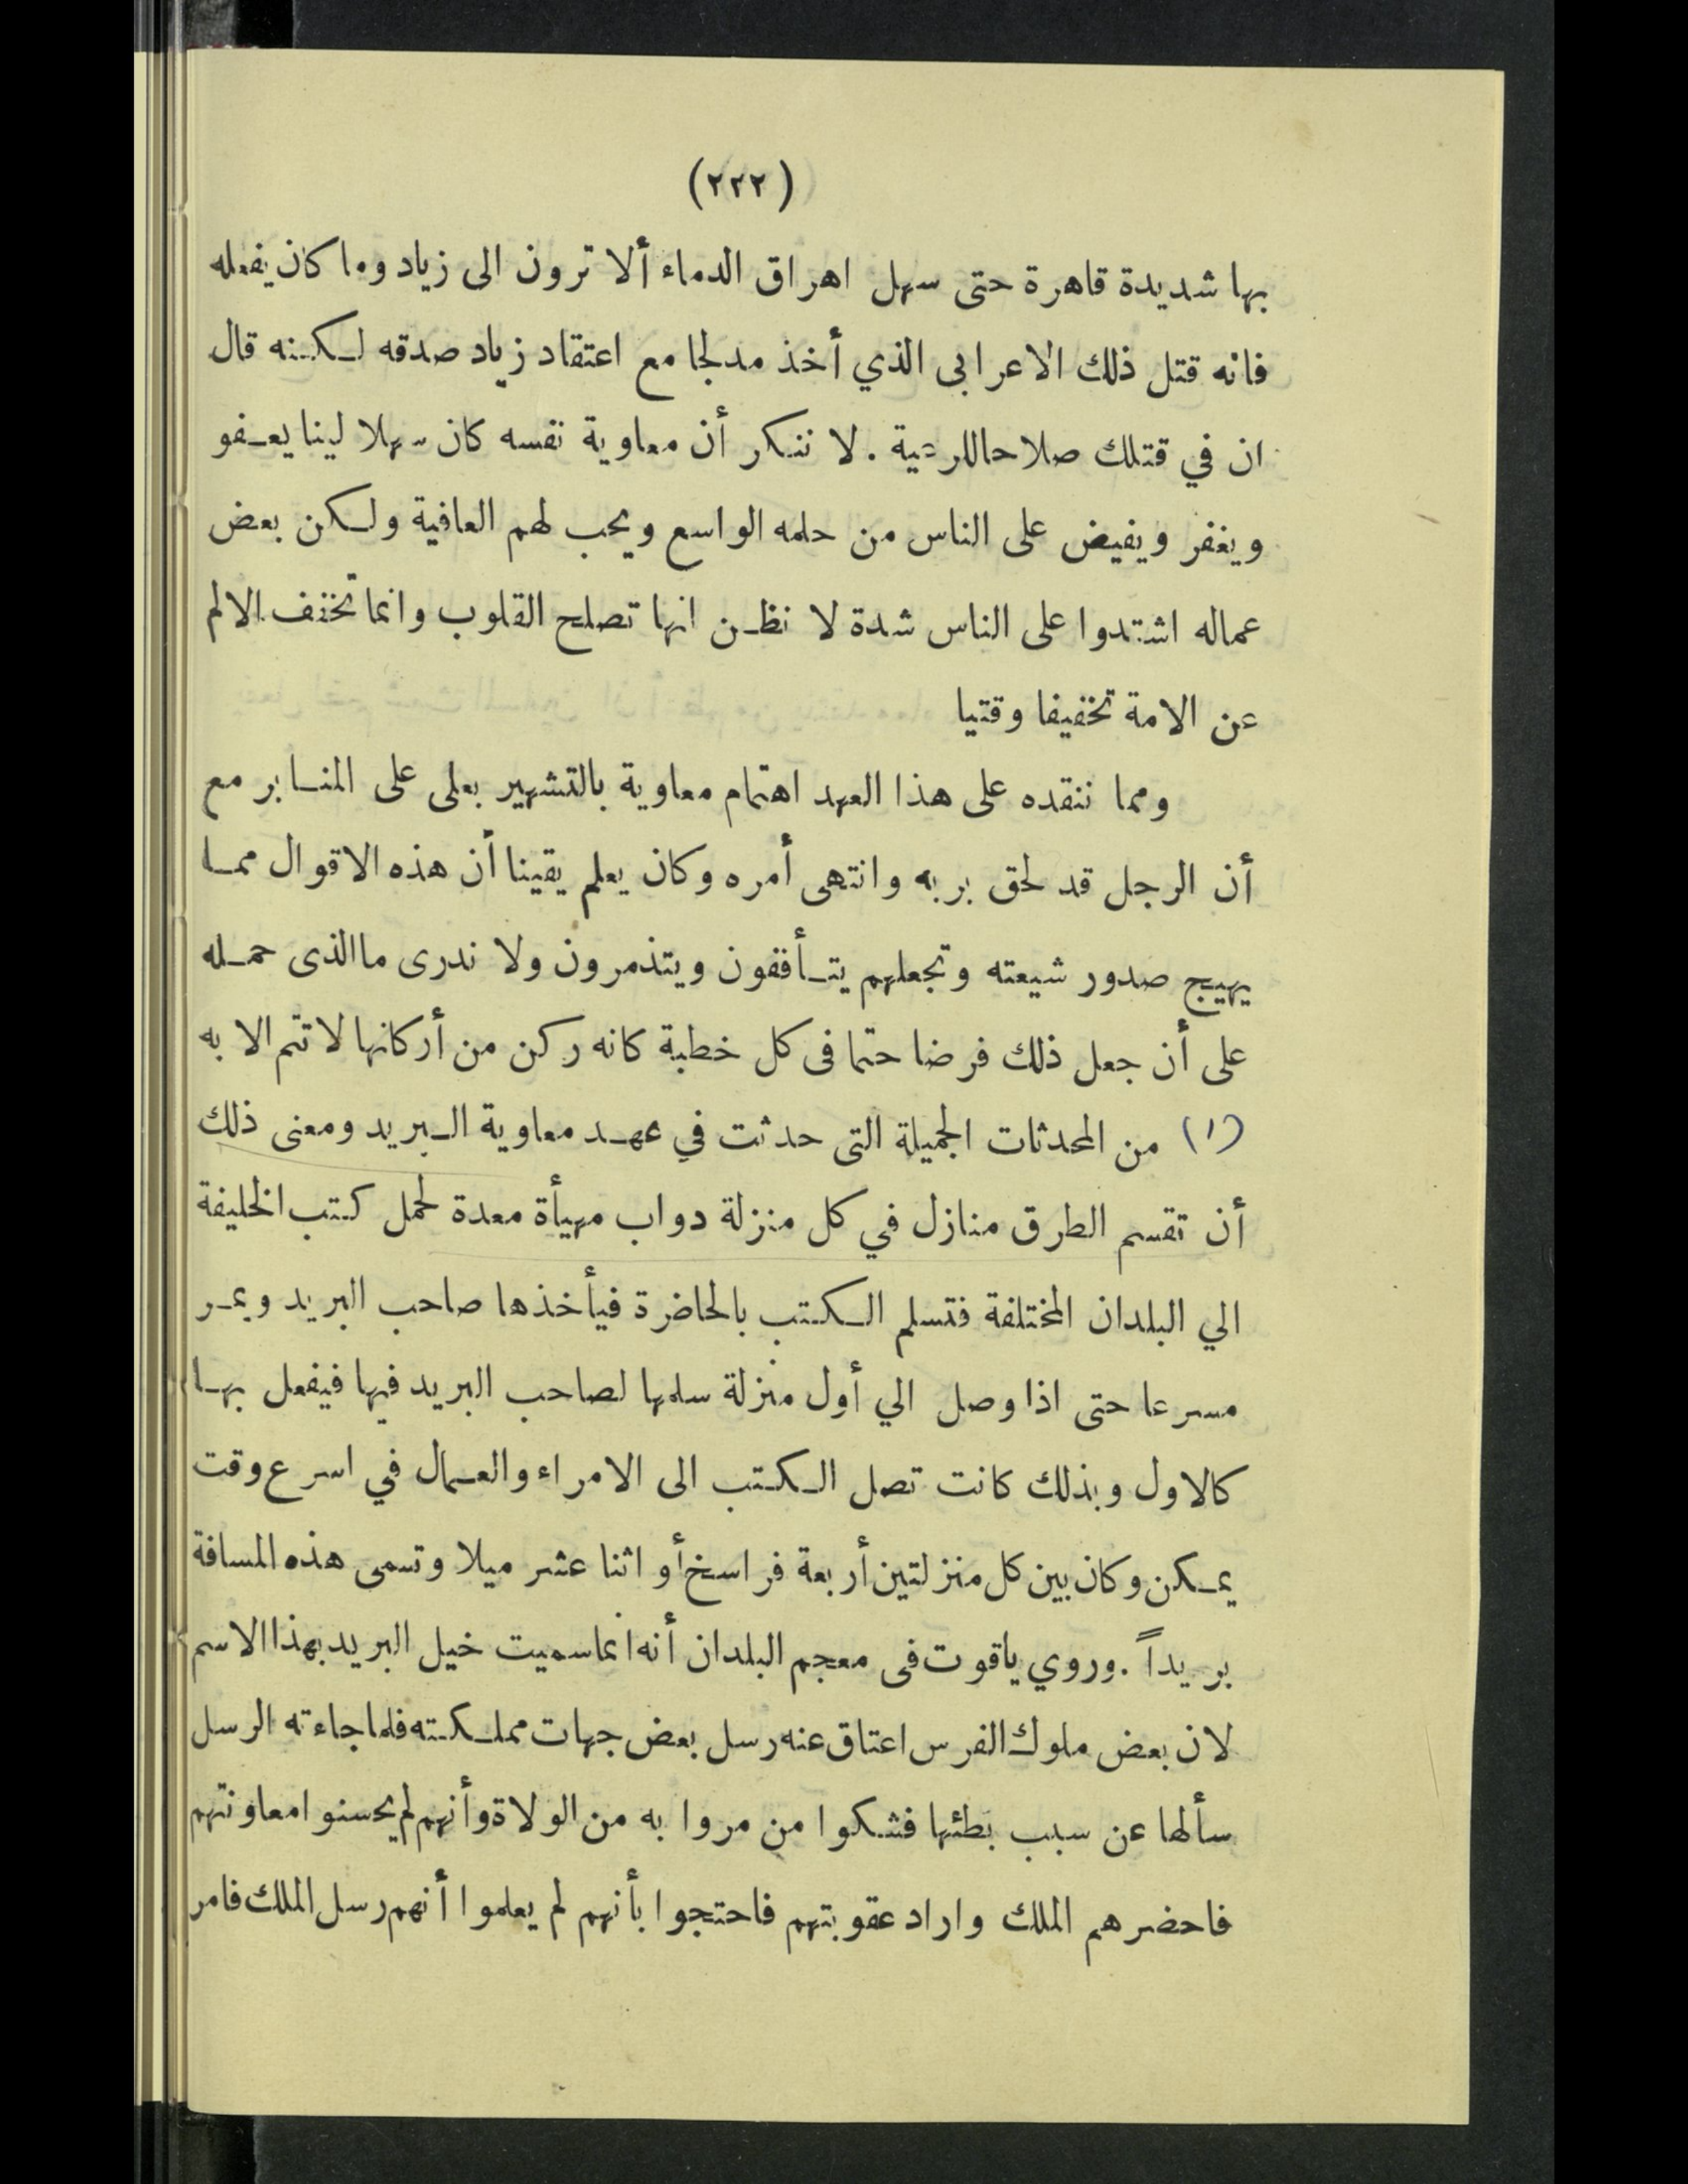 (٢٢٢)
بها شديدة قاهرة حتى سهل اهراق الدماء ألا ترون الى زياد وما كان يفعله
فانه قتل ذلك الاعرابى الذي أخذ مدلجا مع اعتقاد زياد صدقه لكنه قال
ان في قتلك صلاحا للرعية . لا ننكر أن معاوية نفسه كان سهلا لينا يعفو
ويغفر ويفيض على الناس من حلمه الواسع ويحب لهم العافية ولكن بعض
عماله اشتدوا على الناس شدة لا نظن انها تصلح القلوب وانما تخفف الالم
عن الامة تخفيفا وقتيا
ومما ننقده على هذا العهد اهتمام معاوية بالتشهير بعلى على المنابر مع
أن الرجل قد لحق بربه وانتهى أمره وكان يعلم يقينا أن هذه الاقوال مما
يهيج صدور شيعته وتجعلهم يتأففون ويتذمرون ولا ندرى ما الذى حمله
على أن جعل ذلك فرضا حتما فى كل خطبة كانه ركن من أركانها لا تتم الا به
(١) من المحدثات الجميلة التى حدثت في عهد معاوية البريد ومعنى ذلك
أن تقسم الطرق منازل في كل منزلة دواب مهيأة معدة لحمل كتب الخليفة
الي البلدان المختلفة فتسلم الكتب بالحاضرة فيأخذها صاحب البريد ويمر
مسرعا حتى اذا وصل الي أول منزلة سلمها لصاحب البريد فيها فيفعل بها
كالاول وبذلك كانت تصل الكتب الى الامراء والعمال في اسرع وقت
يمكن وكان بين كل منزلتين أربعة فراسخ أو اثنا عشر ميلا وتسمى هذه المسافة
بريداً . وروي ياقوت فى معجم البلدان أنه انما سميت خيل البريد بهذا الاسم
لان بعض ملوك الفرس اعتاق عنه رسل بعض جهات مملكته فلما جاءته الرسل
سألها عن سبب بطئها فشكوا من مروا به من الولاة وأنهم لم يحسنوا معاونتهم
فاحضرهم الملك واراد عقوبتهم فاحتجوا بأنهم لم يعلموا أنهم رسل الملك فامر